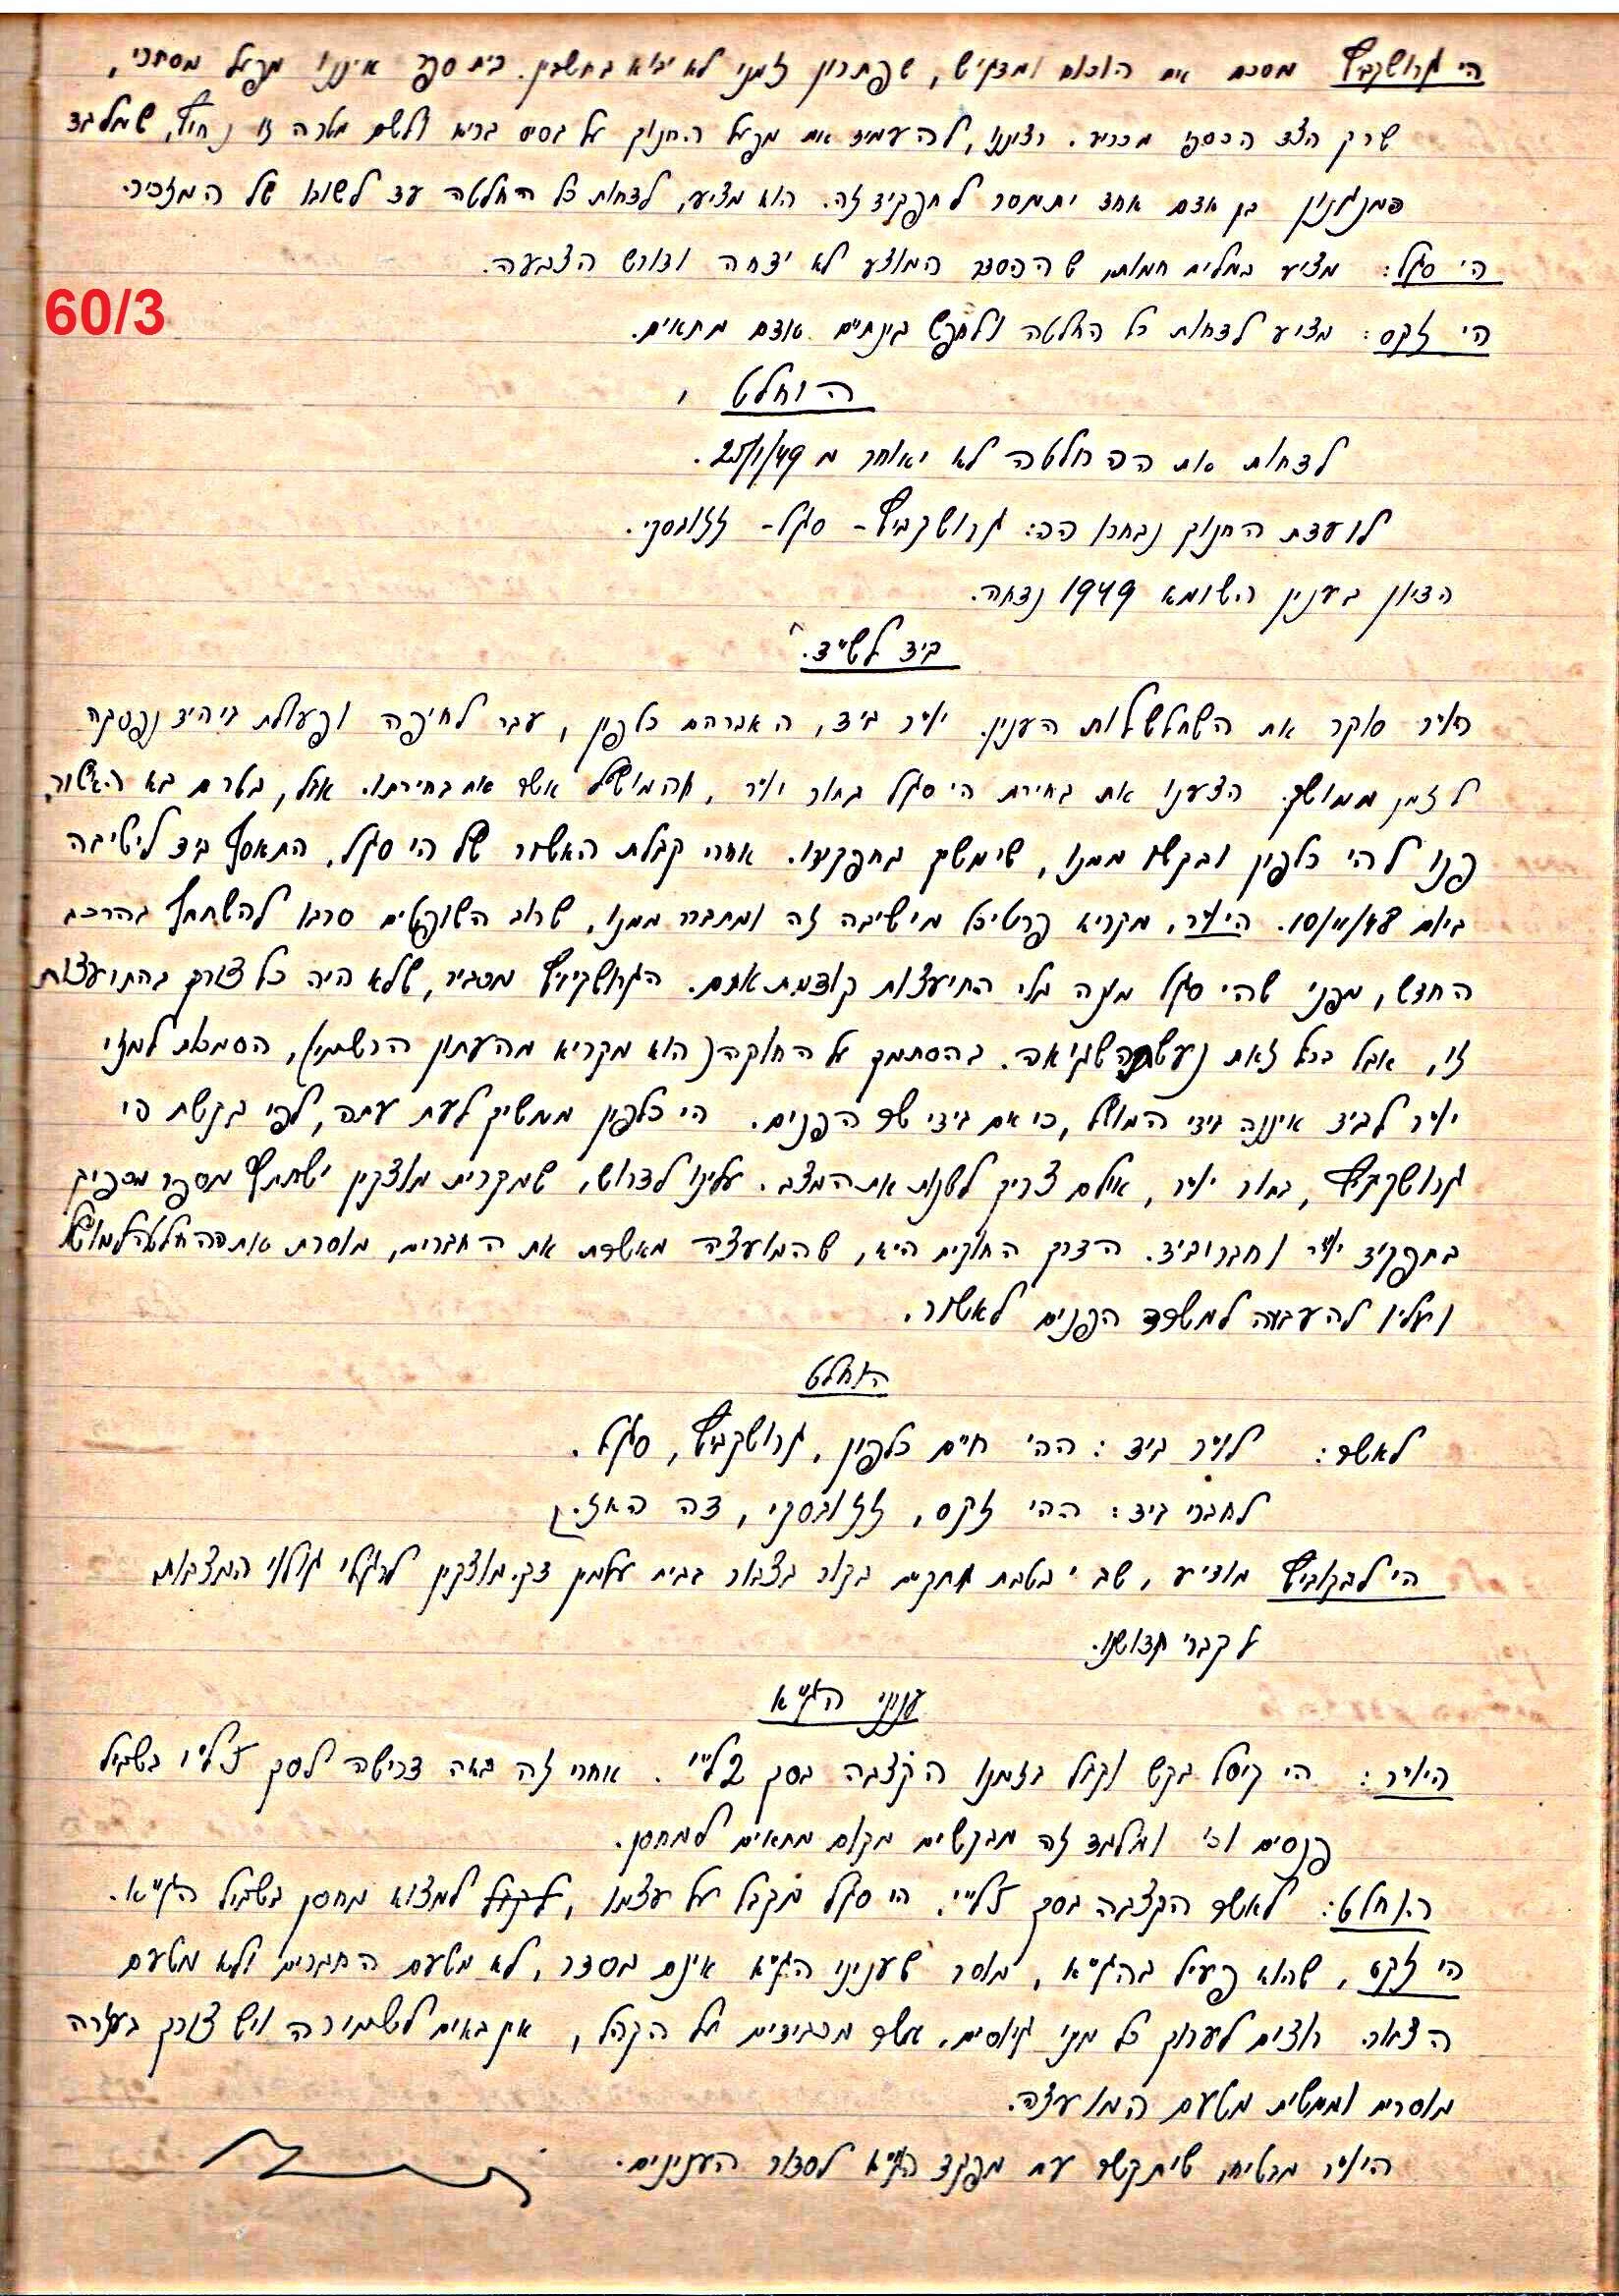 הי גרושקביץ מסכם את הוכוח ומדגיש, שפתרון זמני לא יבוא בחשבון. בית ספר איננו מפעל מסחרי,
שרק הצד הכספי מכריע. רצוננו, להעמיד את מפעל החנוך על בסיס בריא ולשם מטרה זו נחוץ, שמלבד
בן אדם אחד יתמסר לתפקיד זה. הוא מציע, לדחות כל החלטה עד לשובו של המזכיר.
הי סגל: מציע במלים חמות, שההסדר המוצע לא ידחה ודורש הצבעה.
60/3
הי זקס: מציע לדחות כל החלטה ולחפש בינתים אדם מתאים.
הוחלט,
לדחות את ההחלטה לא יאוחר מ 25/1/49.
לועדת החנוך נבחרו הה: גרושקביץ - סגל - זזובסקי.
הדיון בענין השומא 1949 נדחה.
ביד לש"ד.
היו"ר סוקר את השתלשלות הענין. יו"ר ביד, האברהם כלפון, עבר לחיפה ופעולת ביהיד נפסקה
לזמן ממושך. הצענו את בחירת הי סגל בתור יו"ר, והמושל אשר את בחירתו. אבל, בטרם בא האשור,
פנו להי כלפון ובקשו ממנו, שימשיך בתפקידו. אחרי קבלת האשור של הי סגל, התאסף ביד לישיבה
ביום 10/11/48. היו"ר, מקריא פרטיכל מישיבה זה ומתברר ממנו, שרוב השופטים סרבו להשתתף בהרכב
החדש, מפני שהי סגל מונה בלי התיעצות קודמת אתם. הגרושקביץ מסביר, שלא היה כל צורך בהתועצות
זו, אבל בכל זאת נעשתה שגיאה. בהסתמך על החוקה (הוא מקריא מהעתון הרשמי), הסמכות למנוי
יו"ר לביד איננה בידי המושל, כי אם בידי שר הפנים. הי כלפון ממשיך לעת עתה, לפי בקשת הי
גרושקביץ, בתור יו"ר, אולם צריך לשנות את המצב. עלינו לדרוש, שמקרית מוצקין ישתתף מספר מספיק
בתפקיד יו"ר וחברי ביד. הדרך החוקית היא, שהמועצה מאשרת את החברים, מוסרת את ההחלטה למושל
ועליו להעבירה למשרד הפנים לאשור.
הוחלט
לאשר: ליו"ר ביד: ההי חיים כלפון, גרושקביץ, סגל.
לחברי ביד: ההי זקס, זזובסקי, דה האז.
הי לבקוביץ מודיע, שב י בטבת יתקים בקור בצבור בבית עלמין בק. מוצקין לרגלי גולוי המצבות
על קברי קדושנו.
עניני הג"א
היו"ר: הי קיסל בקש וקבל בזמנו הקצבה בסך 2 ל"י. אחרי זה באה דרישה לסך 5 ל"י בשביל
פנסים וכ' ומלבד זה מבקשים מקום מתאים למחסן.
הוחלט: לאשר הקצבה בסך 5 ל"י. הי סגל מקבל על עצמו, לקבל למצוא מחסן בשביל הג"א.
הי זקס, שהוא פעיל בהג"א, מוסר שעניני הג"א אינם בסדר, לא מטעם החברים ולא מטעם
הצבור. רוצים לערוך כל מני גיוסים, אשר מכבידים על הקהל, אין באים לשמירה ויש צורך בעזרה
מוסרית וממשית מטעם המועצה.
היו"ר מבטיח, שיתקשר עם מפקד הג"א לסדור הענינים.